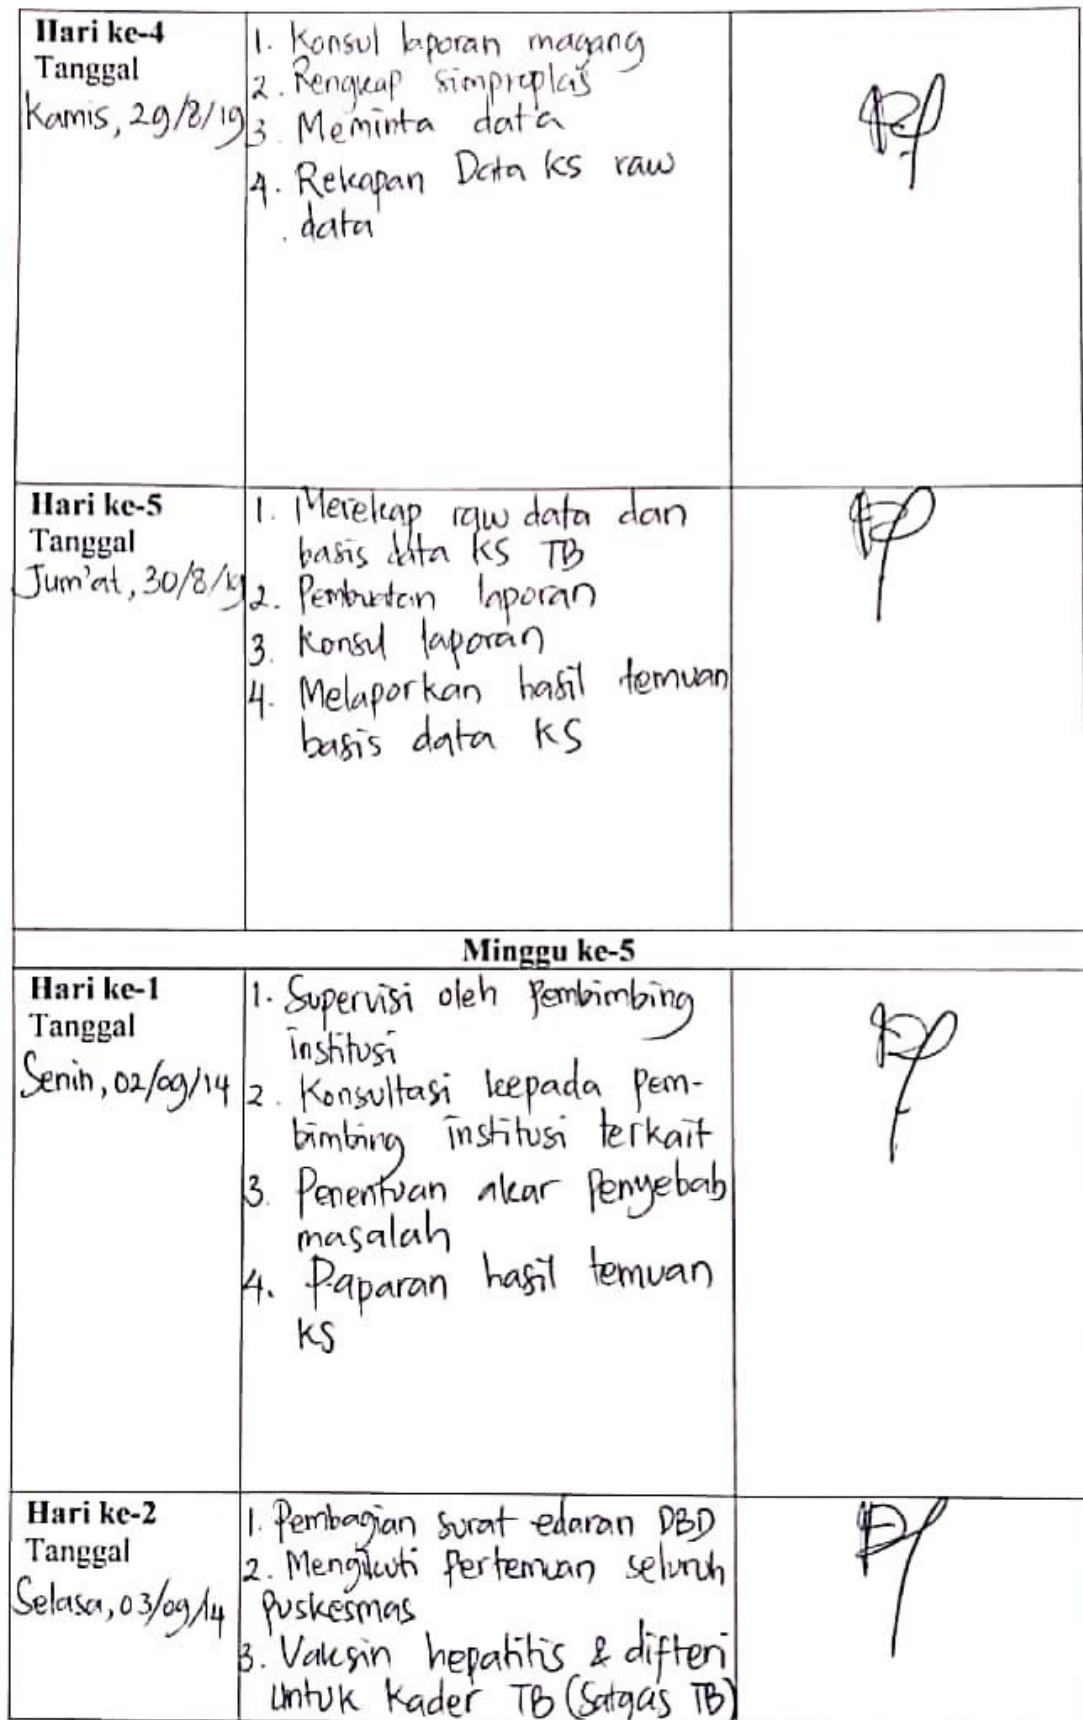 Hari ke-4
Tanggal
Kamis, 29/8/19
1. Konsul laporan magang
2. Rengkap simpreplas
3. Meminta data
4. Rekapan Data KS raw
data
Hari ke-5
Tanggal
Jum'at, 30/8/19
1. Merekap raw data dan
basis data KS TB
2. Pembuatan laporan
3. Konsul laporan
4. Melaporkan hasil temuan
basis data KS
Minggu ke-5
Hari ke-1
Tanggal
Senin, 02/09/14
1. Supervisi oleh Pembimbing
institusi
2. Konsultasi kepada Pem-
bimbing institusi terkait
3. Penentuan akar Penyebab
masalah
4. Paparan hasil temuan
KS
Hari ke-2
Tanggal
Selasa, 03/09/14
1. Pembagian surat edaran DBD
2. Mengikuti Pertemuan seluruh
Puskesmas
3. Vaksin hepatitis & difteri
untuk Kader TB (Satgas TB)